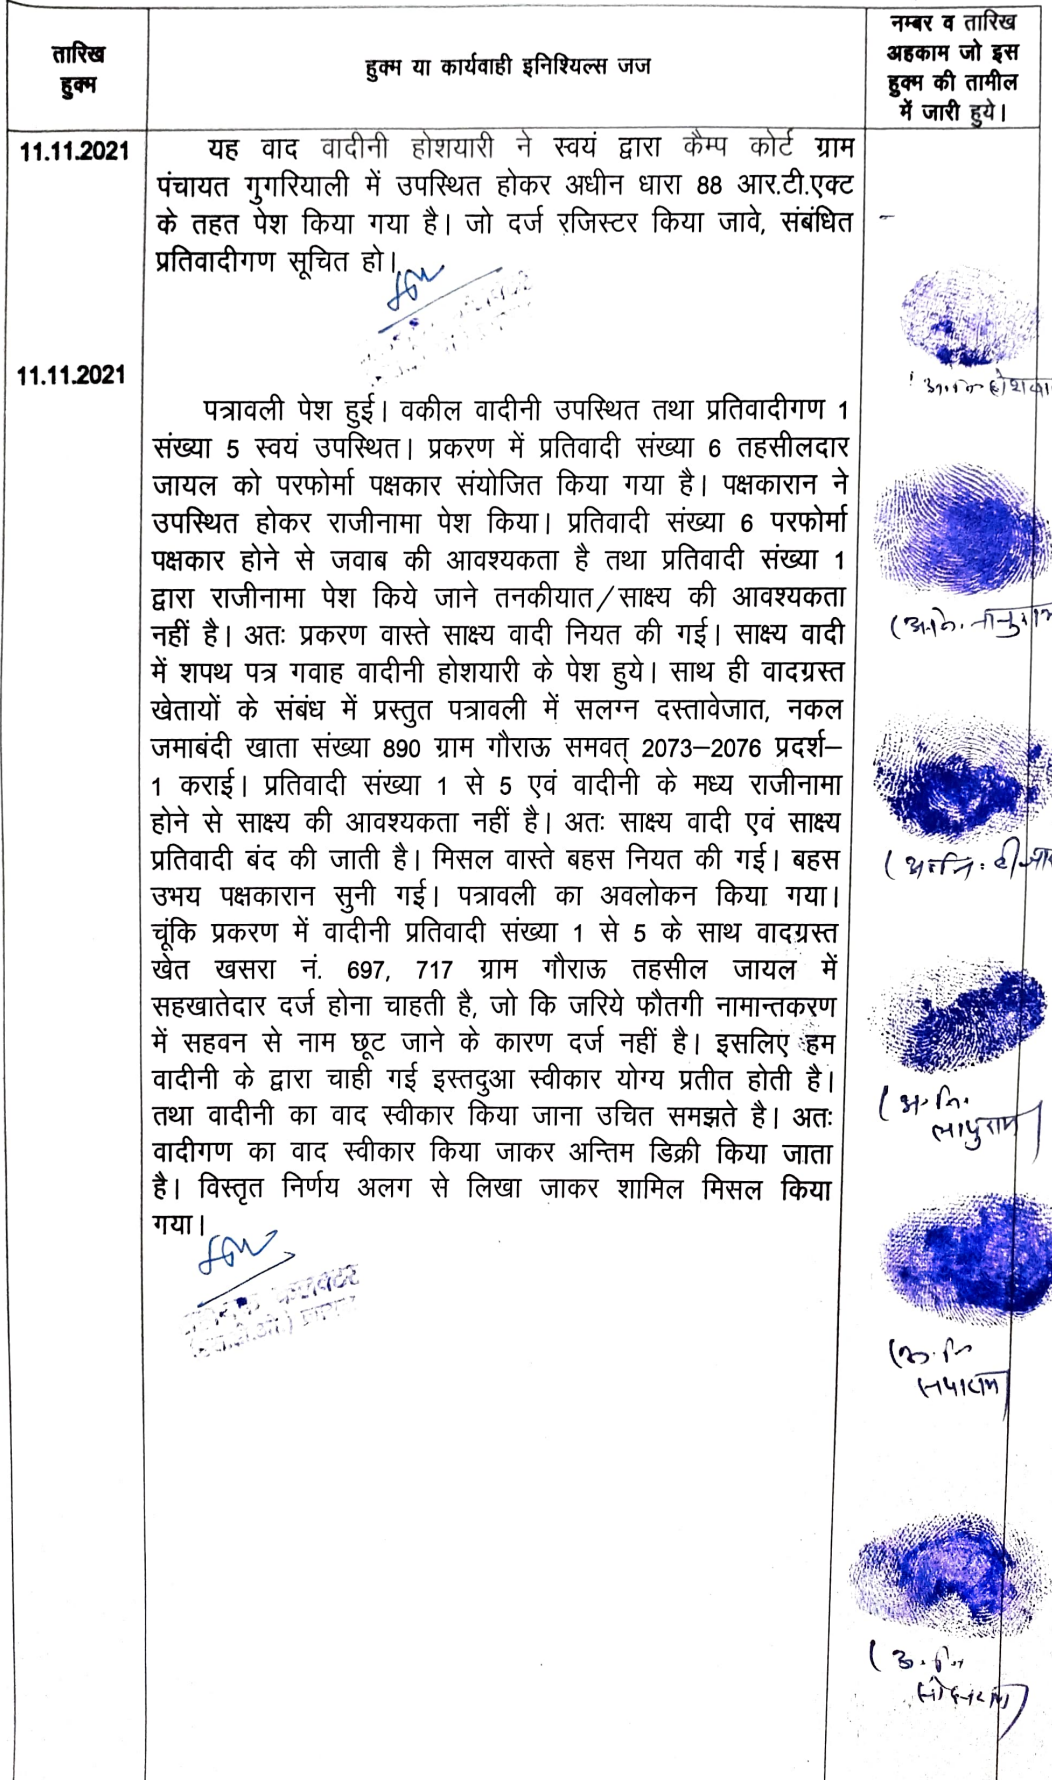 तारिख
हुक्म
हुक्म या कार्यवाही इनिश्यिल्स जज
नम्बर व तारिख
अहकाम जो इस
हुक्म की तामील
में जारी हुये।
11.11.2021
यह वाद वादीनी होशयारी ने स्वयं द्वारा कैम्प कोर्ट ग्राम
पंचायत गुगरियाली में उपस्थित होकर अधीन धारा 88 आर.टी.एक्ट
के तहत पेश किया गया है। जो दर्ज रजिस्टर किया जावे, संबंधित
प्रतिवादीगण सूचित हो।
11.11.2021
पत्रावली पेश हुई। वकील वादीनी उपस्थित तथा प्रतिवादीगण 1
संख्या 5 स्वयं उपस्थित। प्रकरण में प्रतिवादी संख्या 6 तहसीलदार
जायल को परफोर्मा पक्षकार संयोजित किया गया है। पक्षकारान ने
उपस्थित होकर राजीनामा पेश किया। प्रतिवादी संख्या 6 परफोर्मा
पक्षकार होने से जवाब की आवश्यकता है तथा प्रतिवादी संख्या 1
द्वारा राजीनामा पेश किये जाने तनकीयात/साक्ष्य की आवश्यकता
नहीं है। अतः प्रकरण वास्ते साक्ष्य वादी नियत की गई। साक्ष्य वादी
में शपथ पत्र गवाह वादीनी होशयारी के पेश हुये। साथ ही वादग्रस्त
खेतायों के संबंध में प्रस्तुत पत्रावली में सलग्न दस्तावेजात, नकल
जमाबंदी खाता संख्या 890 ग्राम गौराऊ समवत् 2073–2076 प्रदर्श–
1 कराई। प्रतिवादी संख्या 1 से 5 एवं वादीनी के मध्य राजीनामा
होने से साक्ष्य की आवश्यकता नहीं है। अतः साक्ष्य वादी एवं साक्ष्य
प्रतिवादी बंद की जाती है। मिसल वास्ते बहस नियत की गई। बहस
उभय पक्षकारान सुनी गई। पत्रावली का अवलोकन किया गया।
चूंकि प्रकरण में वादीनी प्रतिवादी संख्या 1 से 5 के साथ वादग्रस्त
खेत खसरा नं. 697, 717 ग्राम गौराऊ तहसील जायल में
सहखातेदार दर्ज होना चाहती है, जो कि जरिये फौतगी नामान्तकरण
में सहवन से नाम छूट जाने के कारण दर्ज नहीं है। इसलिए हम
वादीनी के द्वारा चाही गई इस्तदुआ स्वीकार योग्य प्रतीत होती है।
तथा वादीनी का वाद स्वीकार किया जाना उचित समझते है। अतः
वादीगण का वाद स्वीकार किया जाकर अन्तिम डिक्री किया जाता
है। विस्तृत निर्णय अलग से लिखा जाकर शामिल मिसल किया
गया।